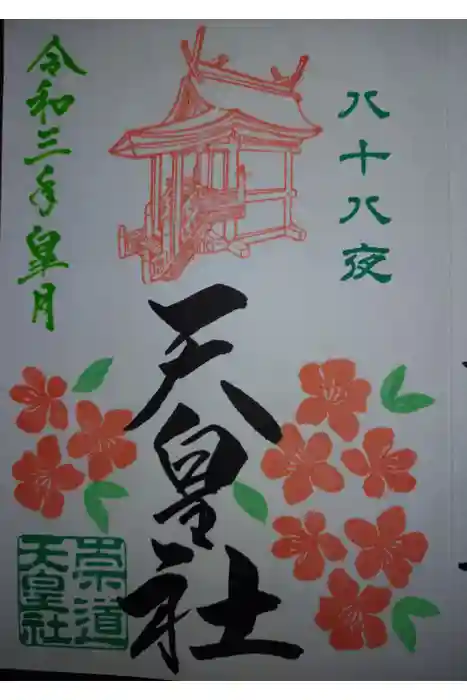 八十八夜
天皇社
令和三年皐月
崇道
天皇社